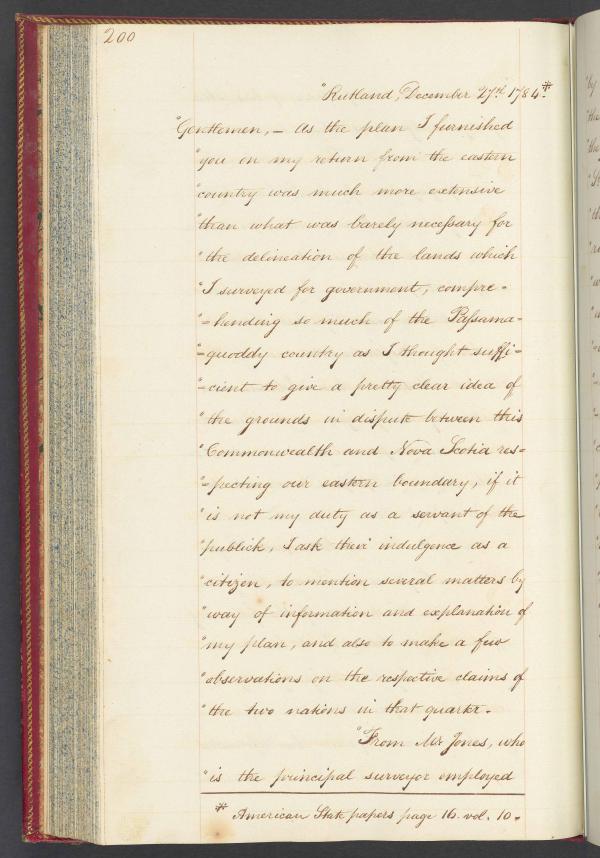 200
"Rutland, December 27th. 1784.*
"Gentlemen, – As the plan I furnished
"you on my return from the eastern
"country was much more extensive
"than what was barely necessary for
"the delineation of the lands which
"I surveyed for government, compre=
"=hending so much of the Passama=
"=quoddy country as I thought suffi=
"=cient to give a pretty clear idea of
"the grounds in dispute between this
"Commonwealth and Nova Scotia res=
"=pecting our eastern boundary, if it
"is not my duty as a servant of the
"publick, I ask their indulgence as a
"citizen, to mention several matters by
"way of information and explanation of
"my plan, and also to make a few
"observations on the respective claims of
"the two nations in that quarter.
"From Mr. Jones, who
"is the principal surveyor employed
* American State papers page 16. vol. 10.